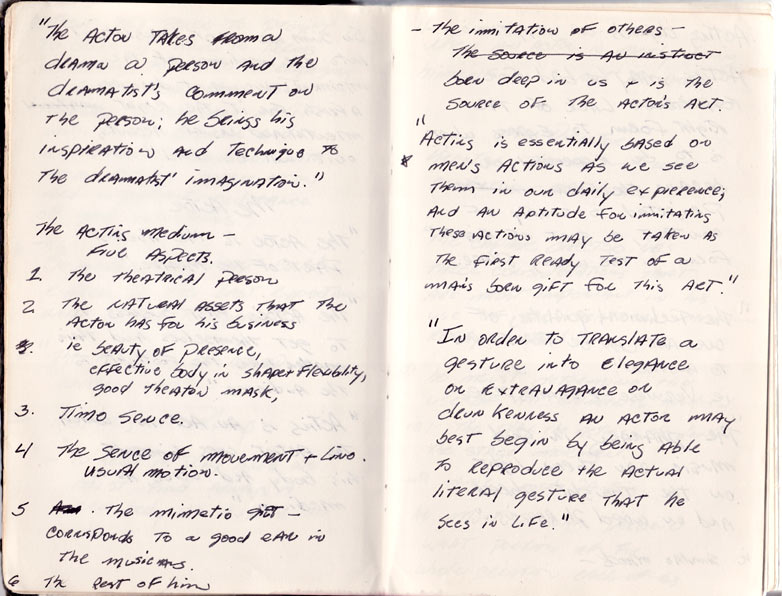 "The Actor Takes From a
drama a person and the
dramatist's comment on
the person; he brings his
inspiration and technique to
the dramatist' imagination.")
The Acting medium -
Five Aspects.
1 The theatrical person
2 The natural assets that the
Actor has for his business
3. ie beauty of presence,
effective body in shape + flexibility,
good theater mask,
3. Time Sence.
4 The Sence of movement + Line.
usual motion.
5 The mimetic gift -
corrisponds to a good ear in
the musicians.
6 The rest of him
- the immitation of others -
The Source is an instinct
born deep in us + is the
source of the Actor's Art.
"Acting is essentially based on
men's Actions as we see
them in our daily experience;
And an Aptitude for immitating
these actions may be taken as
the first ready test of a
man's born gift for this Art."
"In order to translate a
gesture into elegance
or extravagance or
drunkenness an actor may
best begin by being able
to reproduce the actual
literal gesture that he
sees in life."